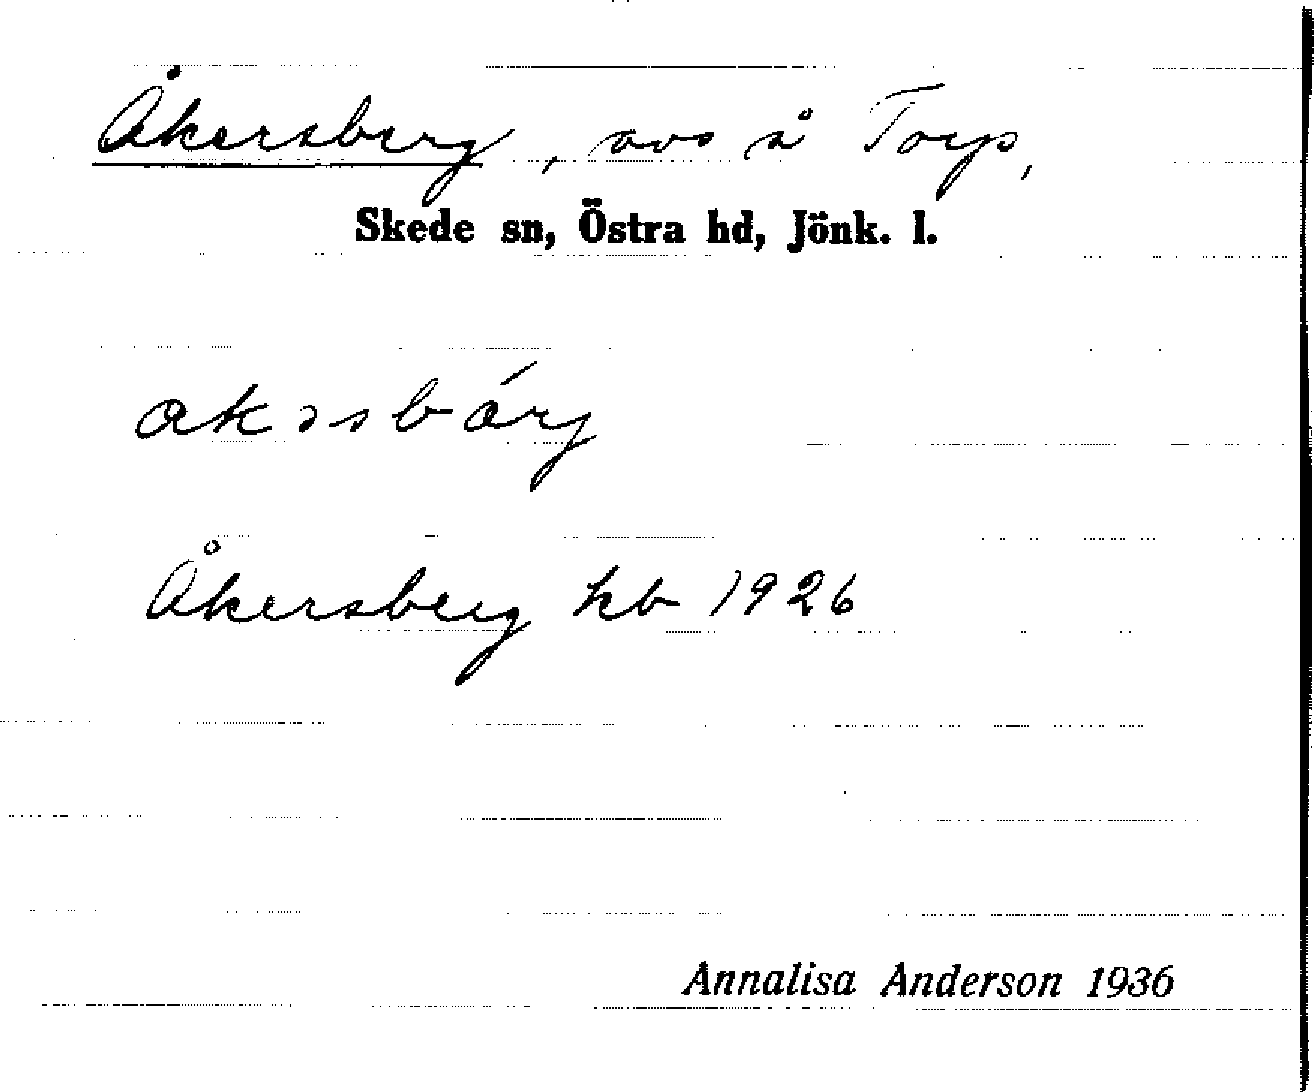 Åkersberg, avs å Torp,
Skede sn, Östra hd, Jönk. l.
Åkersberg hb 1926
Annalisa Anderson 1936